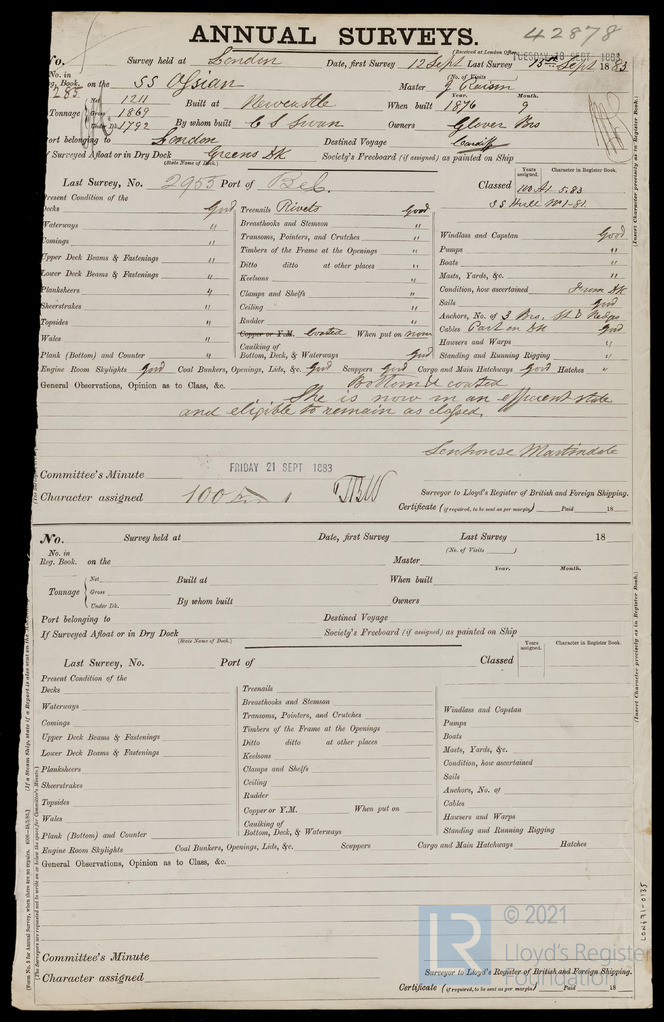 42878
ANNUAL SURVEYS.
(Received at London Office TUESDAY 18 SEPT 1883
No. Survey held at London Date, first Survey 12 Sept Last Survey 15th Sept 1883
No. in Reg. Book. (No. of Visits )
285 on the SS Ossian Master
Net 1211 Year. Month.
Tonnage Gross 1869 Built at Newcastle When built 1876 9
Under Dk. 1792 By whom built C S Swan Owners Glover Bros
Port belonging to London Destined Voyage Cardiff
If Surveyed Afloat or in Dry Dock Greens DK Society's Freeboard (if assigned) as painted on Ship
(State Name of Dock.)
Years assigned. Character in Register Book.
Last Survey, No. 2955 Port of Bel. Classed 100 A1 5.83
SS Hull No 1-81
(Insert Character precisely as in Register Book.)
Present Condition of the
Decks Good Treenails Rivets Good
Waterways " Breasthooks and Stemson " Windlass and Capstan Good
Comings " Transoms, Pointers, and Crutches " Pumps "
Upper Deck Beams & Fastenings " Timbers of the Frame at the Openings " Boats "
Lower Deck Beams & Fastenings " Ditto ditto at other places " Masts, Yards, &c. "
Planksheers " Keelsons " Condition, how ascertained From DK
Sheerstrakes " Clamps and Shelfs " Sails Good
Topsides " Ceiling " Anchors, No. of 3 Brs, St & Kedge
Wales " Rudder " Cables Part on DK Good
Plank (Bottom) and Counter " Copper or Y.M. Coated When put on now Hawsers and Warps "
Caulking of Bottom, Deck, & Waterways Good Standing and Running Rigging "
Engine Room Skylights Good Coal Bunkers, Openings, Lids, &c. Good Scuppers Good Cargo and Main Hatchways Good Hatches "
General Observations, Opinion as to Class, &c. Bottom coated
She is now in an efficient state
and eligible to remain as classed.
Senhouse Martindale
Committee's Minute FRIDAY 21 SEPT 1883
Character assigned 100 A 1 Surveyor to Lloyd's Register of British and Foreign Shipping.
Certificate (if required, to be sent as per margin) Paid 18
No. Survey held at Date, first Survey Last Survey 18
No. in Reg. Book. on the (No. of Visits ) Master
Net Year. Month.
Tonnage Gross Built at When built
Under Dk. By whom built Owners
Port belonging to Destined Voyage
If Surveyed Afloat or in Dry Dock Society's Freeboard (if assigned) as painted on Ship
(State Name of Dock.)
Years assigned. Character in Register Book.
Last Survey, No. Port of Classed
(Insert Character precisely as in Register Book.)
Present Condition of the
Decks Treenails
Waterways Breasthooks and Stemson Windlass and Capstan
Comings Transoms, Pointers, and Crutches Pumps
Upper Deck Beams & Fastenings Timbers of the Frame at the Openings Boats
Lower Deck Beams & Fastenings Ditto ditto at other places Masts, Yards, &c.
Planksheers Keelsons Condition, how ascertained
Sheerstrakes Clamps and Shelfs Sails
Topsides Ceiling Anchors, No. of
Wales Rudder Cables
Plank (Bottom) and Counter Copper or Y.M. When put on Hawsers and Warps
Caulking of Bottom, Deck, & Waterways Standing and Running Rigging
Engine Room Skylights Coal Bunkers, Openings, Lids, &c. Scuppers Cargo and Main Hatchways Hatches
General Observations, Opinion as to Class, &c.
Committee's Minute
Character assigned Surveyor to Lloyd's Register of British and Foreign Shipping.
Certificate (if required, to be sent as per margin) Paid 18
LON671-0135
LR © 2021
Lloyd's Register
Foundation